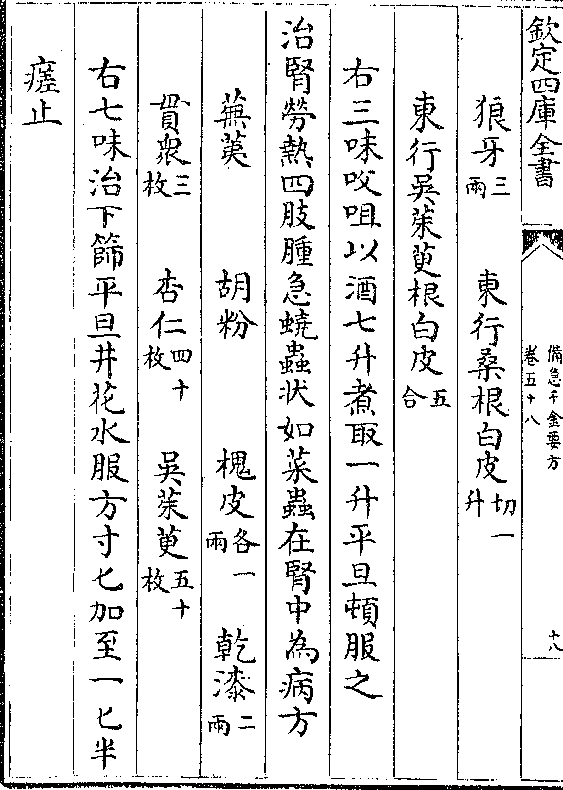 欽定四庫全書
備急千金要方
卷五十八
十八
狼牙三兩 東行桑根白皮切一升
東行吳茱萸根白皮五合
右三味㕮咀以酒七升煮取一升平旦頓服之
治腎勞熱四肢腫急蟯蟲狀如菜蟲在腎中為病方
蕪荑 胡粉 槐皮各一兩 乾漆二兩
貫衆三枚 杏仁四十枚 吳茱萸五十枚
右七味治下篩平旦井花水服方寸匕加至一匕半
瘥止